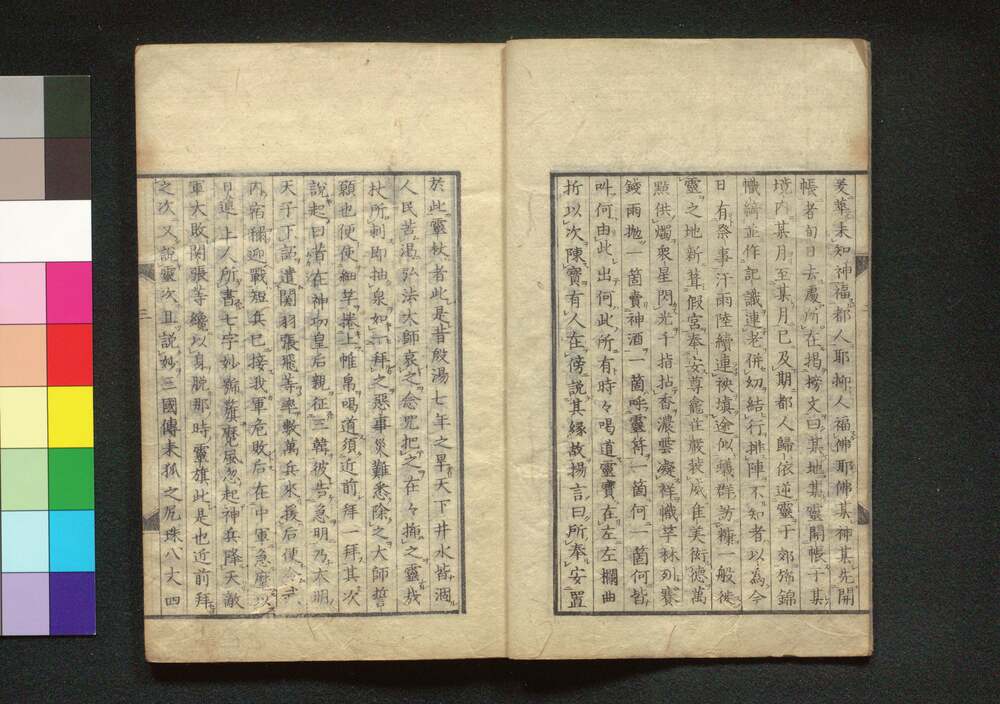 爰輩未知神福都人耶抑人福佛耶佛某神某先開
帳者旬日去處所在揭榜文曰某地某靈開帳于某
境内某月至某月已及期都人歸依逆靈于郊旆錦
幟綺並作記識連老併幼結行排陣不知者以為今
日有祭事汗雨陸續連袂填途似蟻群訪糠一般徙
靈之地新葺假宮奉安尊龕莊嚴
點供燭衆星閃光千指拈香濃雲凝祥幟竿林列賽
錢雨拋一箇賣神酒一箇呼靈符一箇何一箇何皆
叫何由此出何此所有時々喝道靈寶在左左欄曲
折以次陳寶有人在傍說其緣故揚言曰所奉安置
於此靈杖者此是昔殷湯七年之旱天下井水皆涸
人民苦渴弘法大師哀之念咒把之在々插之靈哉
杖所刺即抽泉如一拜之惡事災難悉除之大師誓
願也便使細竿捲上帷帛喝道須近前拜一拜其次
說起曰昔在神功皇后親征三韓彼告急明乃大明
天子丁詔遣關羽張飛等率數萬兵來援后便
内宿稱迎戰短兵已接我軍危敗后在中軍急麾以
日蓮上人所書七字妙號旗麾展忽起神兵降天敵
軍大敗關張等纔以身脫那時靈旗此是也近前拜
之次又說靈次且說妙三國傳來狐之尻珠八丈四
三